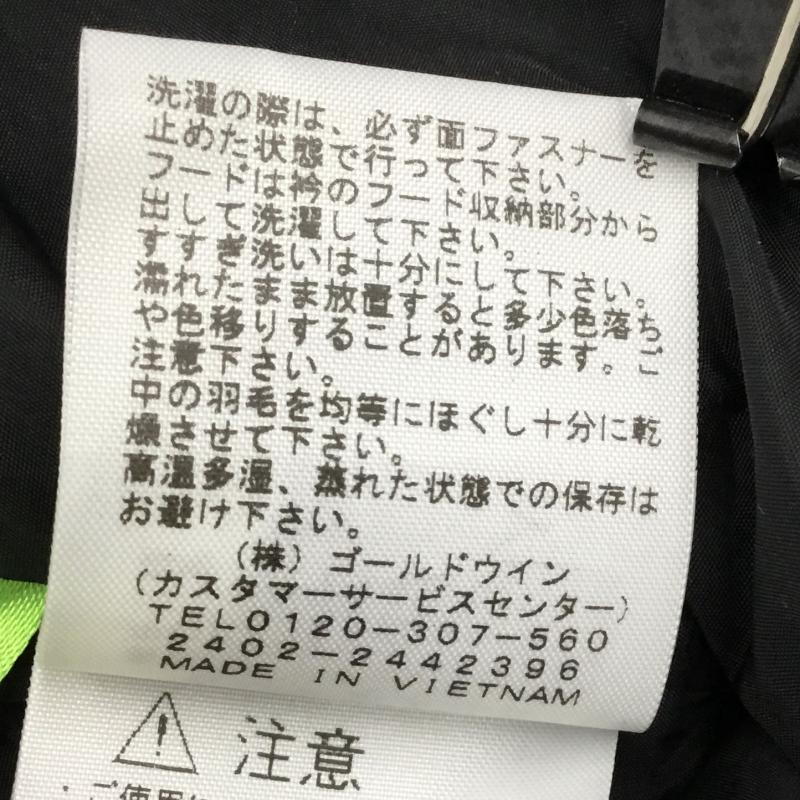 洗濯の際は、必ず面ファスナーを
止めた状態で行って下さい。
フードは衿のフード収納部分から
出して洗濯して下さい。
すすぎ洗いは十分にして下さい。
濡れたまま放置すると多少色落ち
や色移りすることがあります。ご
注意下さい。
中の羽毛を均等にほぐし十分に乾
燥させて下さい。
高温多湿、蒸れた状態での保存は
お避け下さい。
(株)ゴールドウイン
(カスタマーサービスセンター)
TEL0120-307-560
2402-2442396
MADE IN VIETNAM
注意
・ご使用